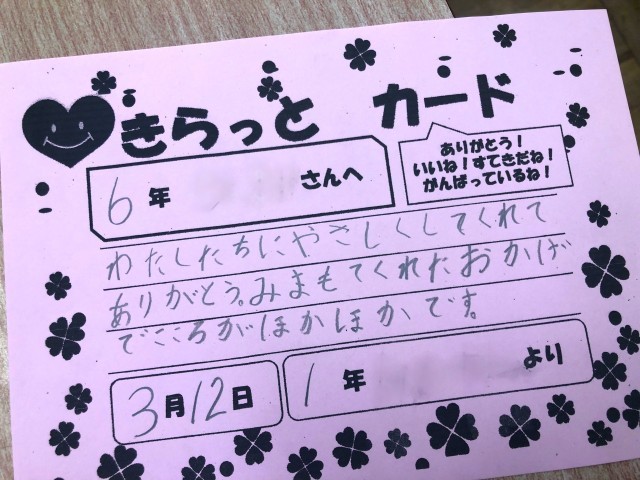 きらっと カード
ありがとう!
いいね!すてきだね!
がんばっているね!
6年 さんへ
わたしたちにやさしくしてくれて
ありがとう。みまもてくれたおかげ
でこころがほかほかです。
3月12日
1年 より